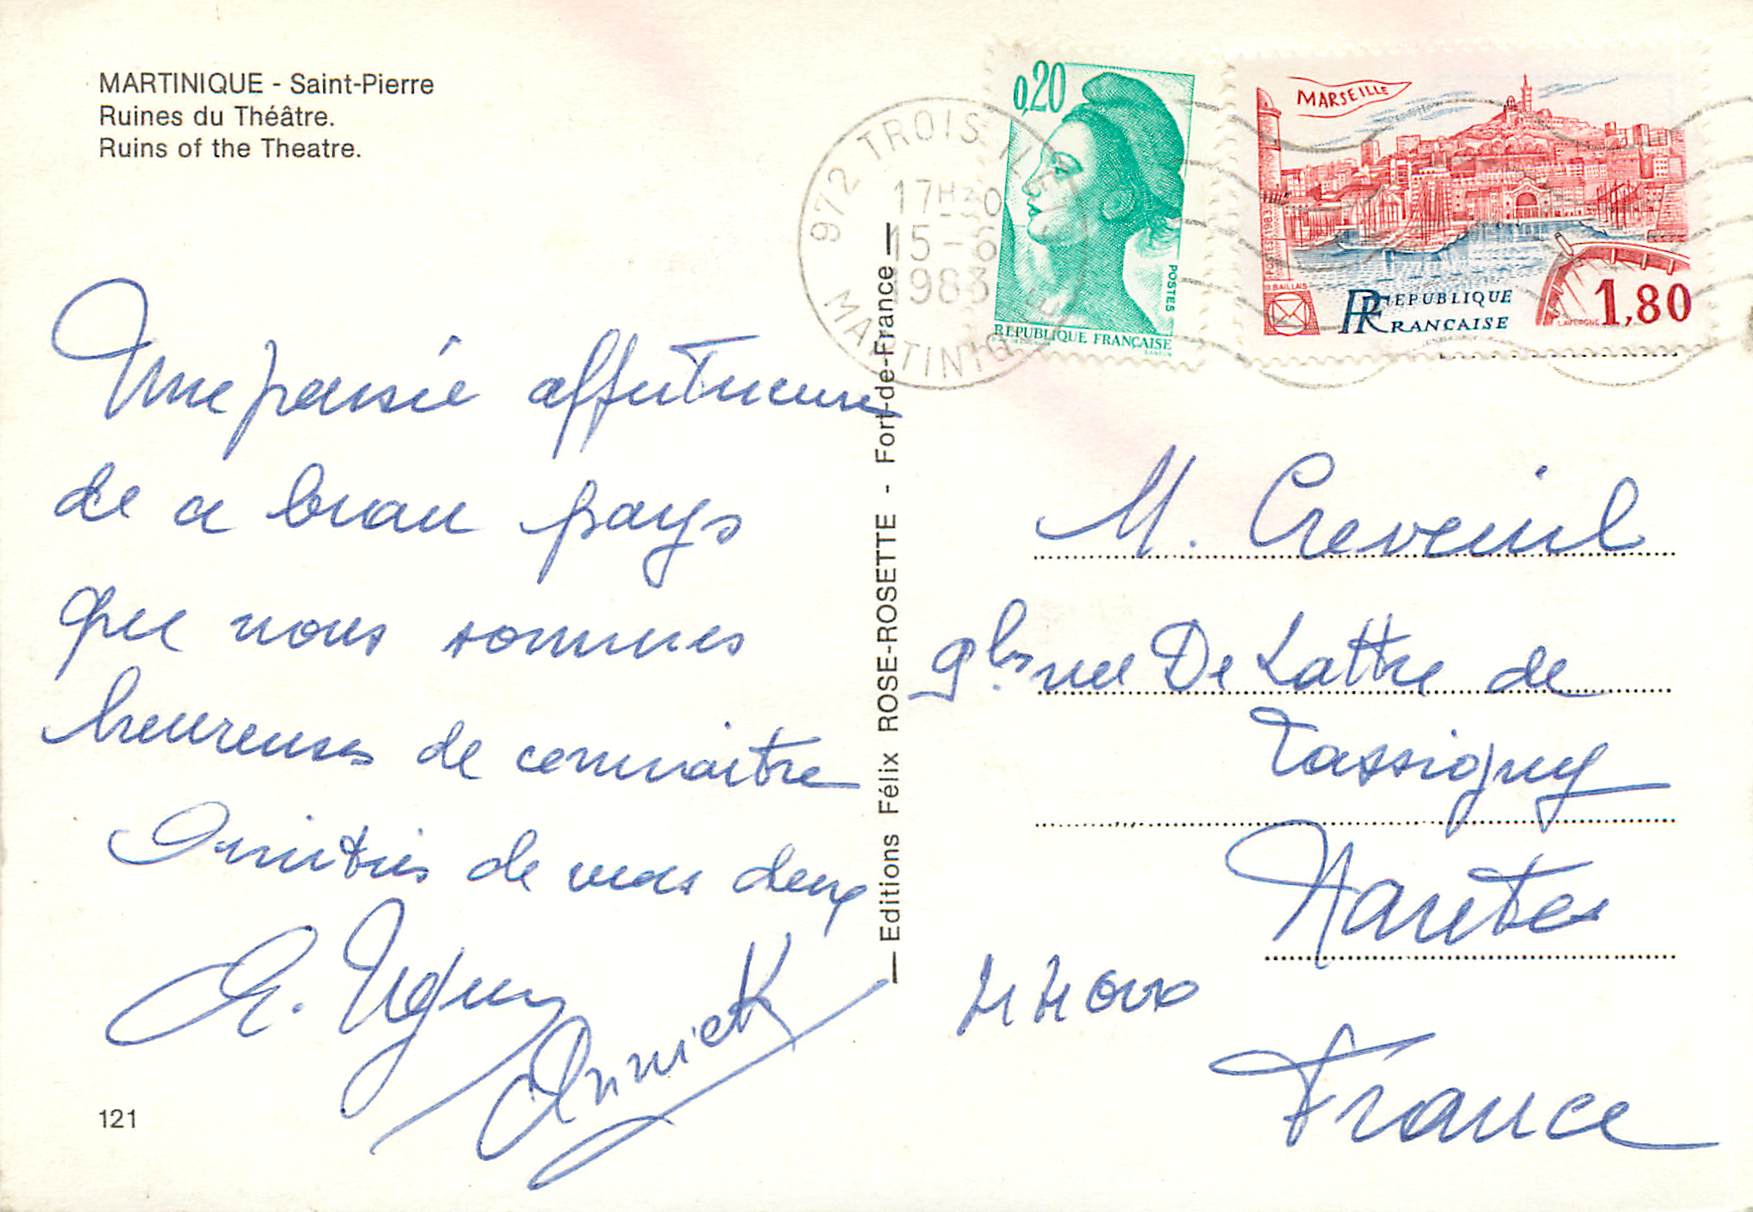 MARTINIQUE - Saint-Pierre
Ruines du Théâtre.
Ruins of the Theatre.
Une pensée affectueuse
de ce beau pays
que nous sommes
heureuses de connaitre
Amitiés de nous deux
Annick
121
Editions Félix ROSE-ROSETTE - Fort-de-France
972 TROIS ILETS
17H30
15-6
1983
MARTINIQUE
0,20
POSTES
REPUBLIQUE FRANÇAISE
MARSEILLE
POSTES 1983
REPUBLIQUE
FRANCAISE
1,80
M. Creveuil
9bis rue De Lattre de
Tassigny
Nantes
44000
France